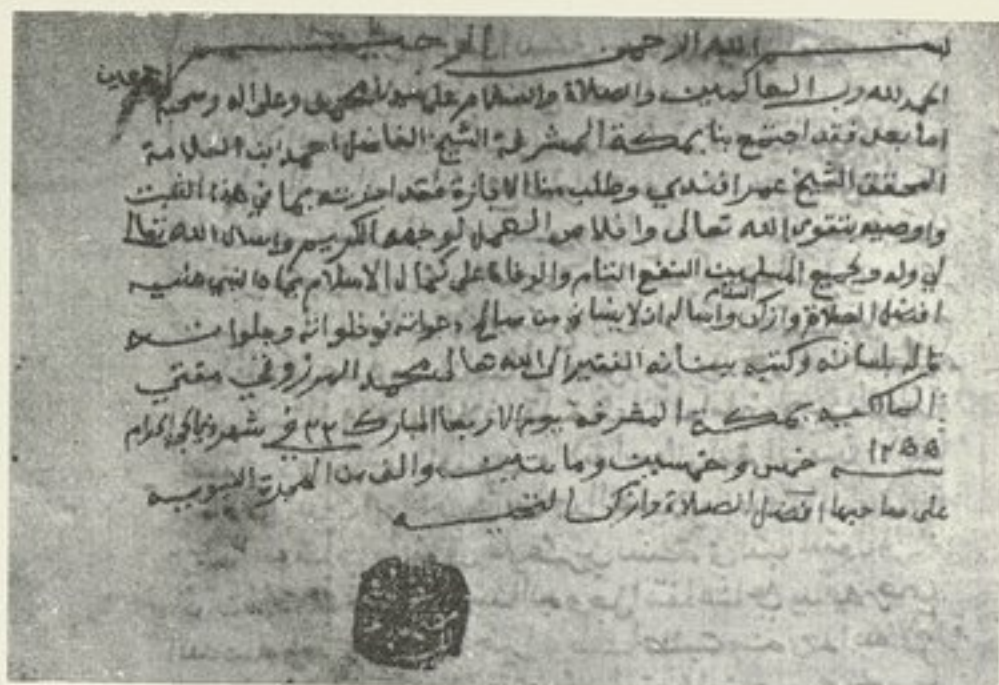 بسم الله الرحمن الرحيم
الحمد لله رب العالمين والصلاة والسلام على سيدنا محمد وعلى اله وصحبه اجمعين
اما بعد فقد اجتمع بنا بمكة المشرفة الشيخ الفاضل احمد ابن العلامة
المحقق الشيخ عمر افندي وطلب منا الاجازة فقد اجزته بما في هذا الثبت
واوصيه بتقوى الله تعالى واخلاص العمل لوجهه الكريم واسال الله تعالى
لي وله ولجميع المسلمين النفع التام والوفاة على كمال الاسلام بجاه النبي عليه
افضل الصلاة وازكى السلام واساله ان لا ينساني من صالح دعواته في خلواته وجلواته
قاله بلسانه وكتبه ببنانه الفقير الى الله تعالى محمد المرزوقي مفتي
المالكيه بمكة المشرفة يوم الاربعا المبارك ٢٣ في شهر ذي الحجة الحرام
١٢٥٥ سنه خمس وخمسين ومايتين والف من الهجرة النبويه
على صاحبها افضل الصلاة وازكى التحيه